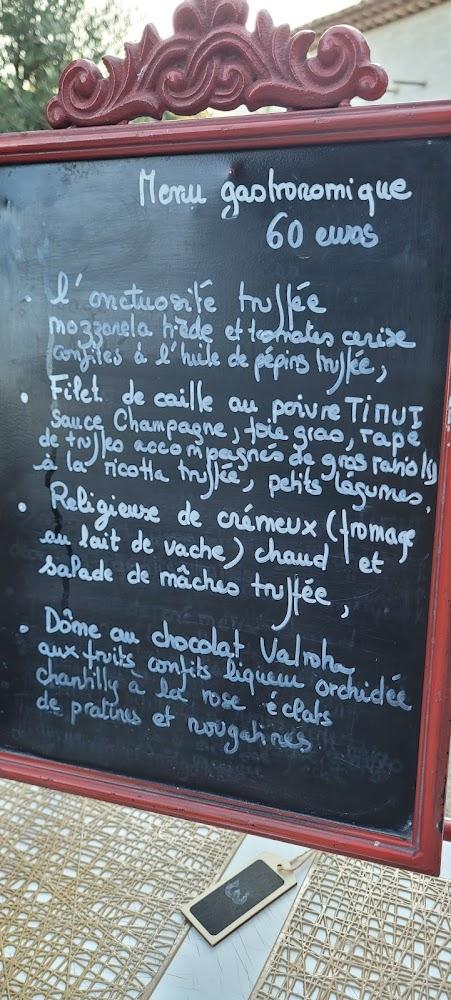 Menu gastronomique
60 euros
• l'onctuosité truffée
mozzarela tiède et tomates cerise
confites à l'huile de pépins truffée,
• Filet de caille au poivre TIMUT
sauce Champagne, foie gras, rapé
de truffes accompagnés de gros raviolis
à la ricotta truffée, petits légumes.
• Religieuse de crémeux (fromage
au lait de vache) chaud et
salade de mâches truffée,
• Dôme au chocolat Valrohna
aux fruits confits liqueur orchidée
chantilly à la rose éclats
de pralines et nougatines